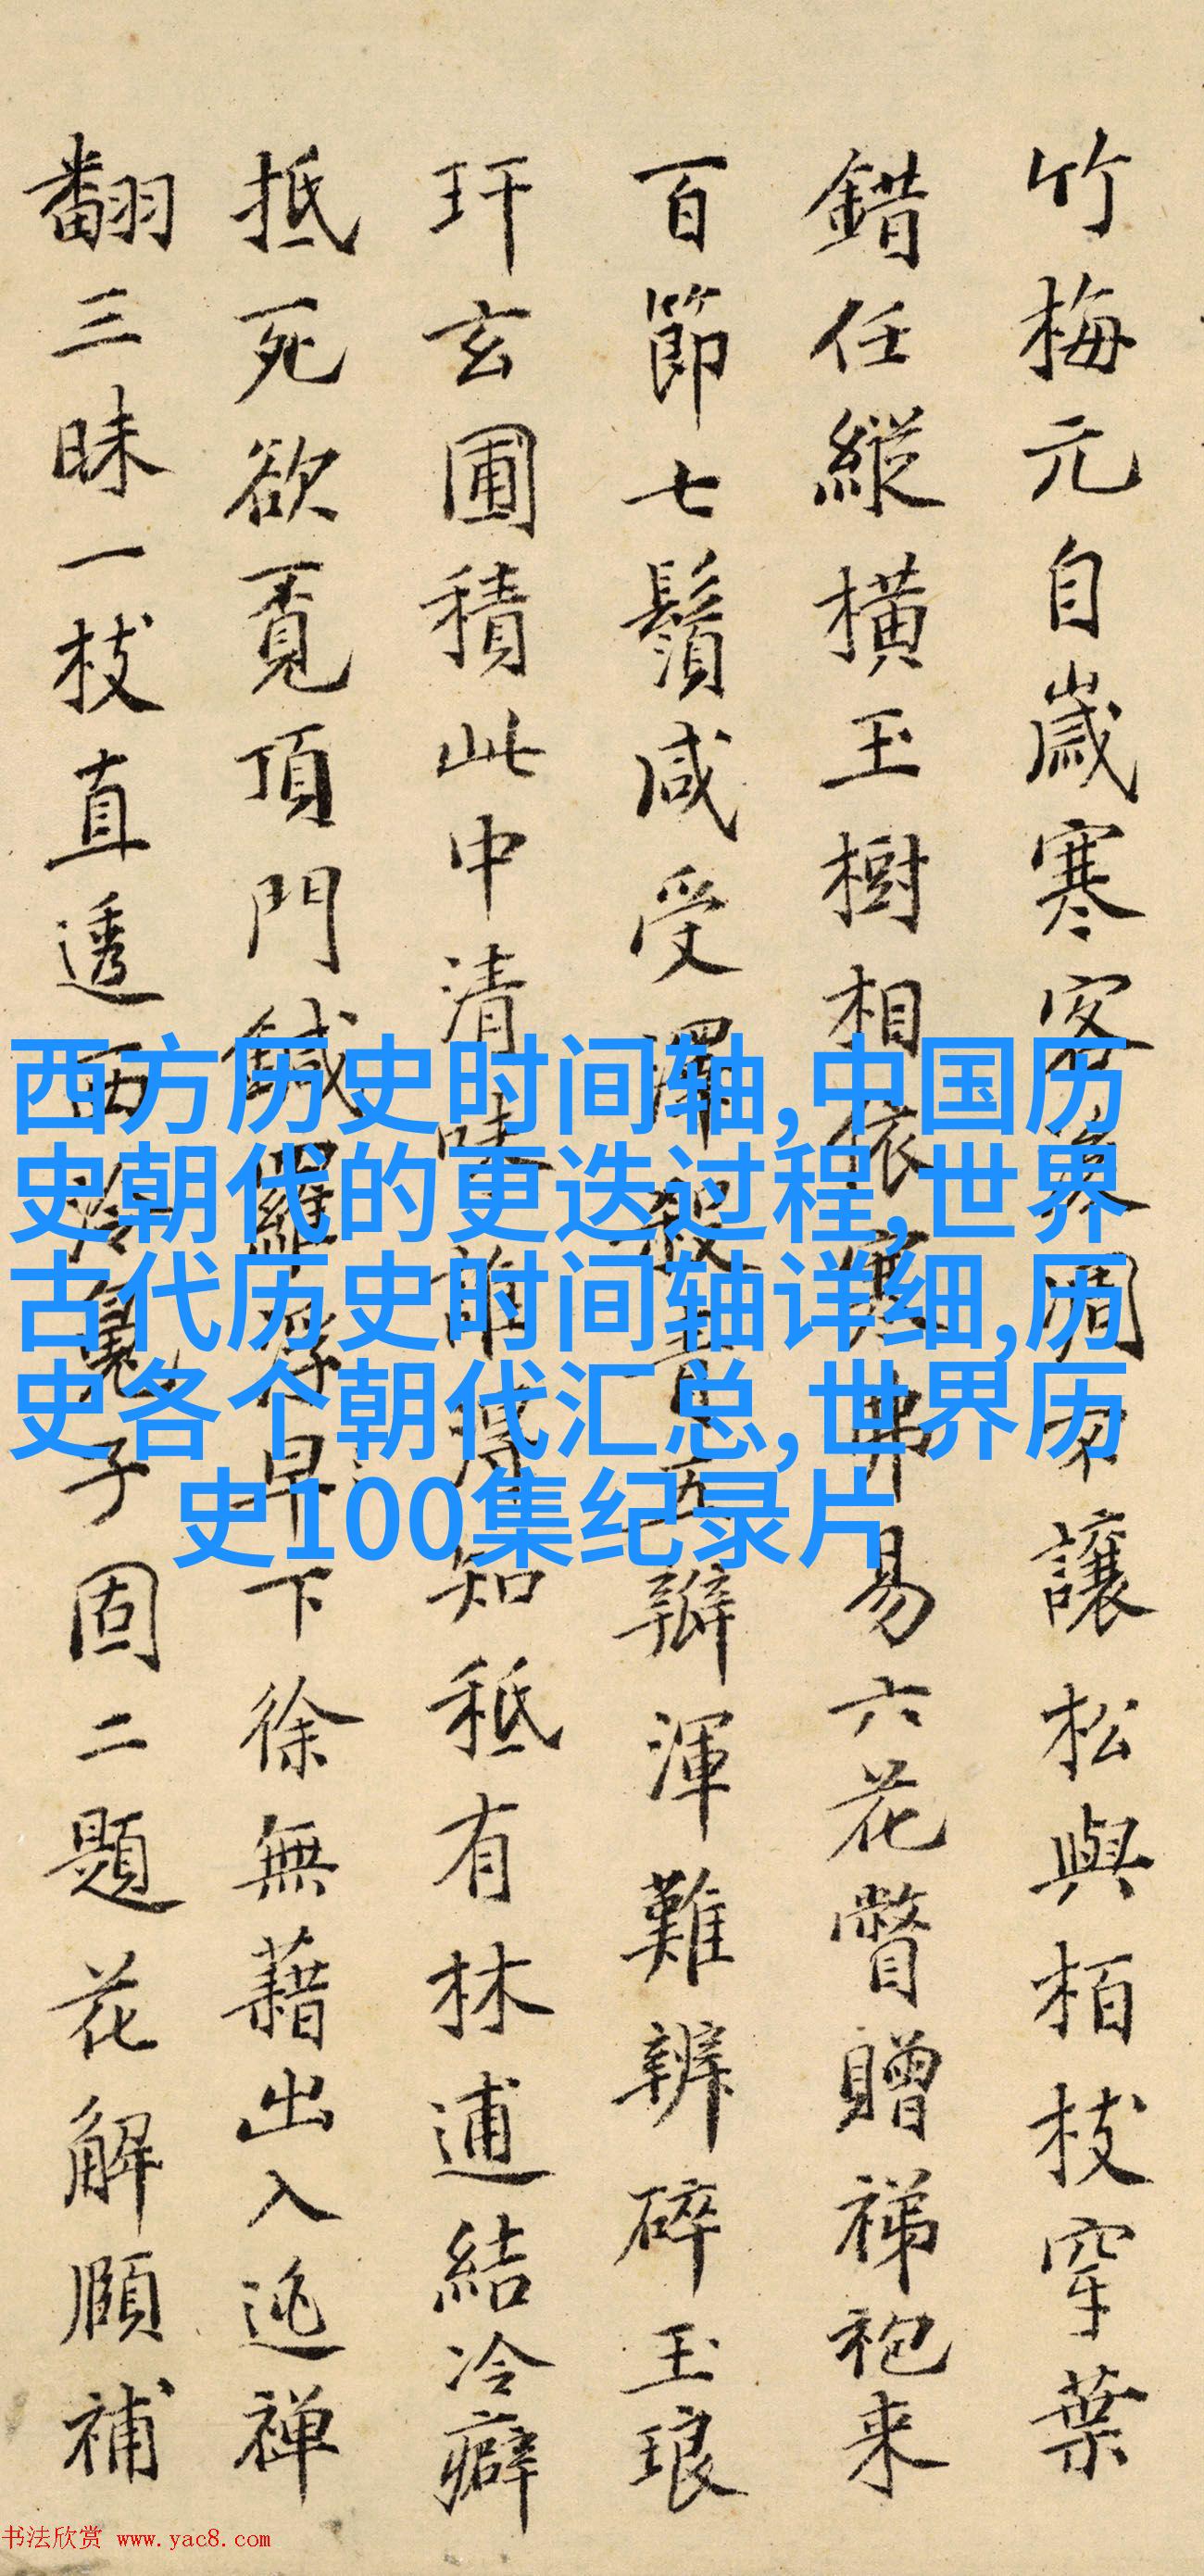 竹梅元自歲寒客間不讓松與栢枝穿葉
錯任縱橫玉樹相依寒弗易六花瞥贈祶袍来
百節七鬚咸受澤殺青五瓣渾難辨碎玉琅
玕玄圃積此中清味誰得知秪有林逋結冷癖
抵死欲覔頂門鍼羅浮早下徐無藉出入逃禅
翻三昧一枝直透西泠子固二題花解頤補
西方历史时间轴,中国历
史朝代的更迭过程,世界
古代历史时间轴详细,历
史各个朝代汇总,世界历
史100集纪录片
书法欣赏 www.yac8.com